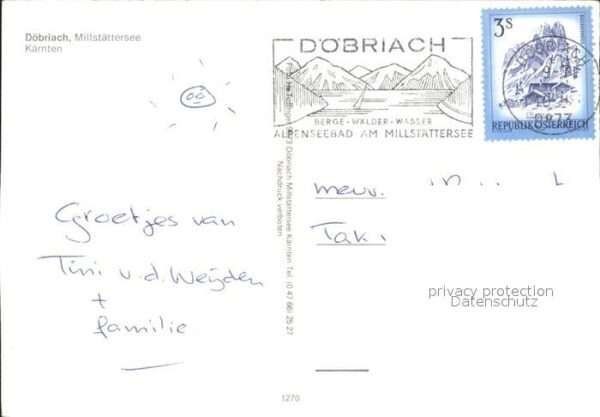 Döbriach, Millstättersee
Kärnten
DÖBRIACH
BERGE · WÄLDER · WASSER
ALPENSEEBAD AM MILLSTÄTTERSEE
3s
REPUBLIK ÖSTERREICH
DÖBRIACH
9873
Groetjes van
Tini v.d. Weijden
+
familie
Döbriach Millstättersee Kärnten Tel. (0 47 66) 25 27
Nachdruck verboten
mevr.
Tak
privacy protection
Datenschutz
1270